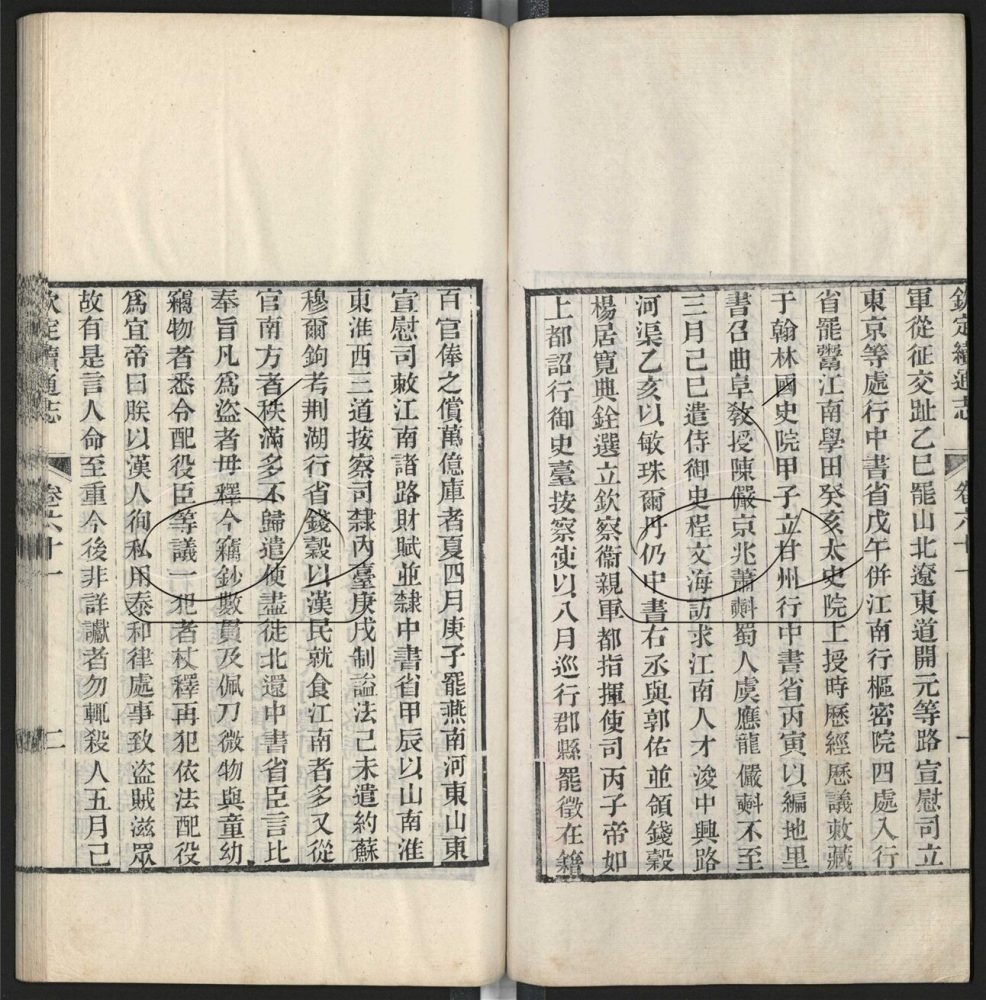 欽定續通志 卷六十一 一
軍從征交趾乙巳罷山北遼東道開元等路宣慰司立
東京等處行中書省戊午併江南行樞密院四處入行
省罷鬻江南學田癸亥太史院上授時歷經歷議敕藏
于翰林國史院甲子立甘州行中書省丙寅以編地里
書召曲阜教授陳儼京兆蕭㪺蜀人虞應龍儼㪺不至
三月己巳遣侍御史程文海訪求江南人才浚中興路
河渠乙亥以敏珠爾丹仍中書右丞與郭佑並領錢穀
楊居寬典銓選立欽察衞親軍都指揮使司丙子帝如
上都詔行御史臺按察使以八月巡行郡縣罷徵在籍
百官俸之償萬億庫者夏四月庚子罷燕南河東山東
宣慰司敕江南諸路財賦並隸中書省甲辰以山南淮
東淮西三道按察司隸內臺庚戌制諡法己未遣約蘇
穆爾鉤考荆湖行省錢穀以漢民就食江南者多又從
官南方者秩滿多不歸遣使盡徙北還中書省臣言比
奉旨凡爲盜者毋釋今竊鈔數貫及佩刀微物與童幼
竊物者悉令配役臣等議一犯者杖釋再犯依法配役
爲宜帝曰朕以漢人徇私用泰和律處事致盜賊滋眾
故有是言人命至重今後非詳讞者勿輒殺人五月己
欽定續通志 卷六十一 二